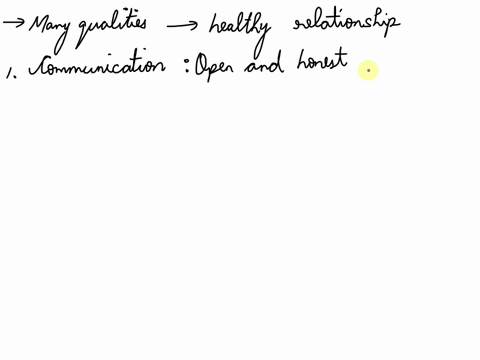 → Many qualities → healthy relationship
1. Communication : Open and honest